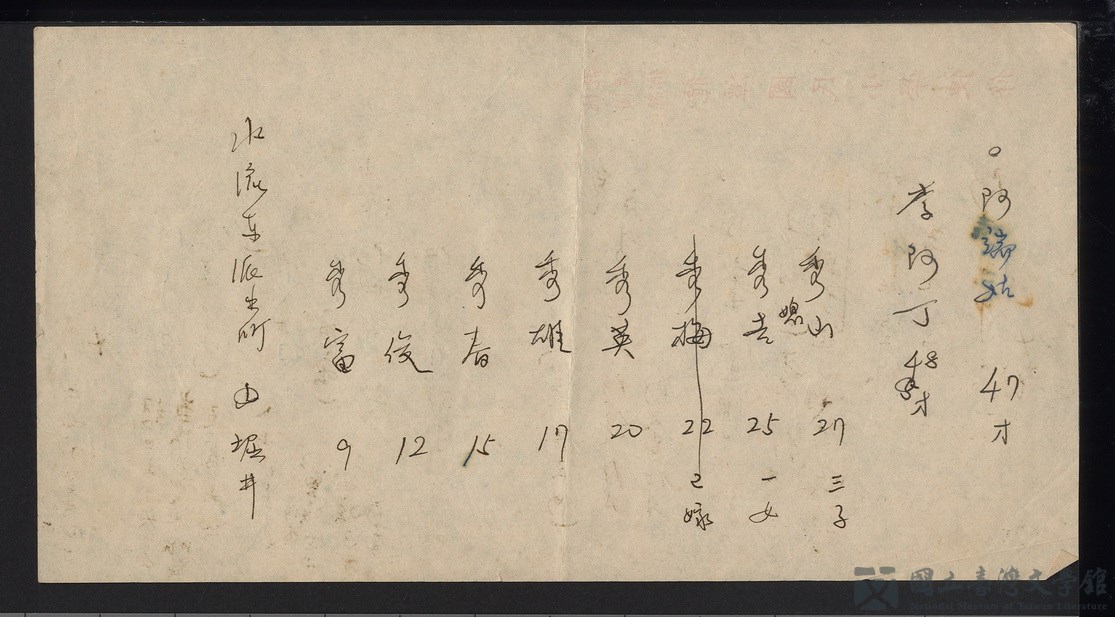 ○阿瑞姑 47才
李阿丁 48才
秀山 27 三子
媳
秀吉 25 一女
秀梅 22 已嫁
秀英 20
秀雄 17
秀春 15
秀俊 12
秀富 9
水流东派出所 由堀井
國立臺灣文學館
National Museum of Taiwan Literature